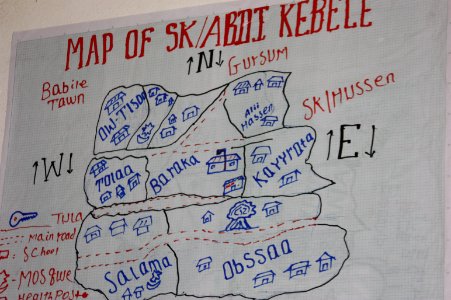 MAP OF SK/ABDI KEBELE
N
Gursum
Babile
Tawn
SK/Hussen
Ow-Tisaa
Alii
Hassen
W
E
Tolaa
Baraka
Kayyrata
Tula
Main road
School
Mosque
Health Post
Salama
Obssaa